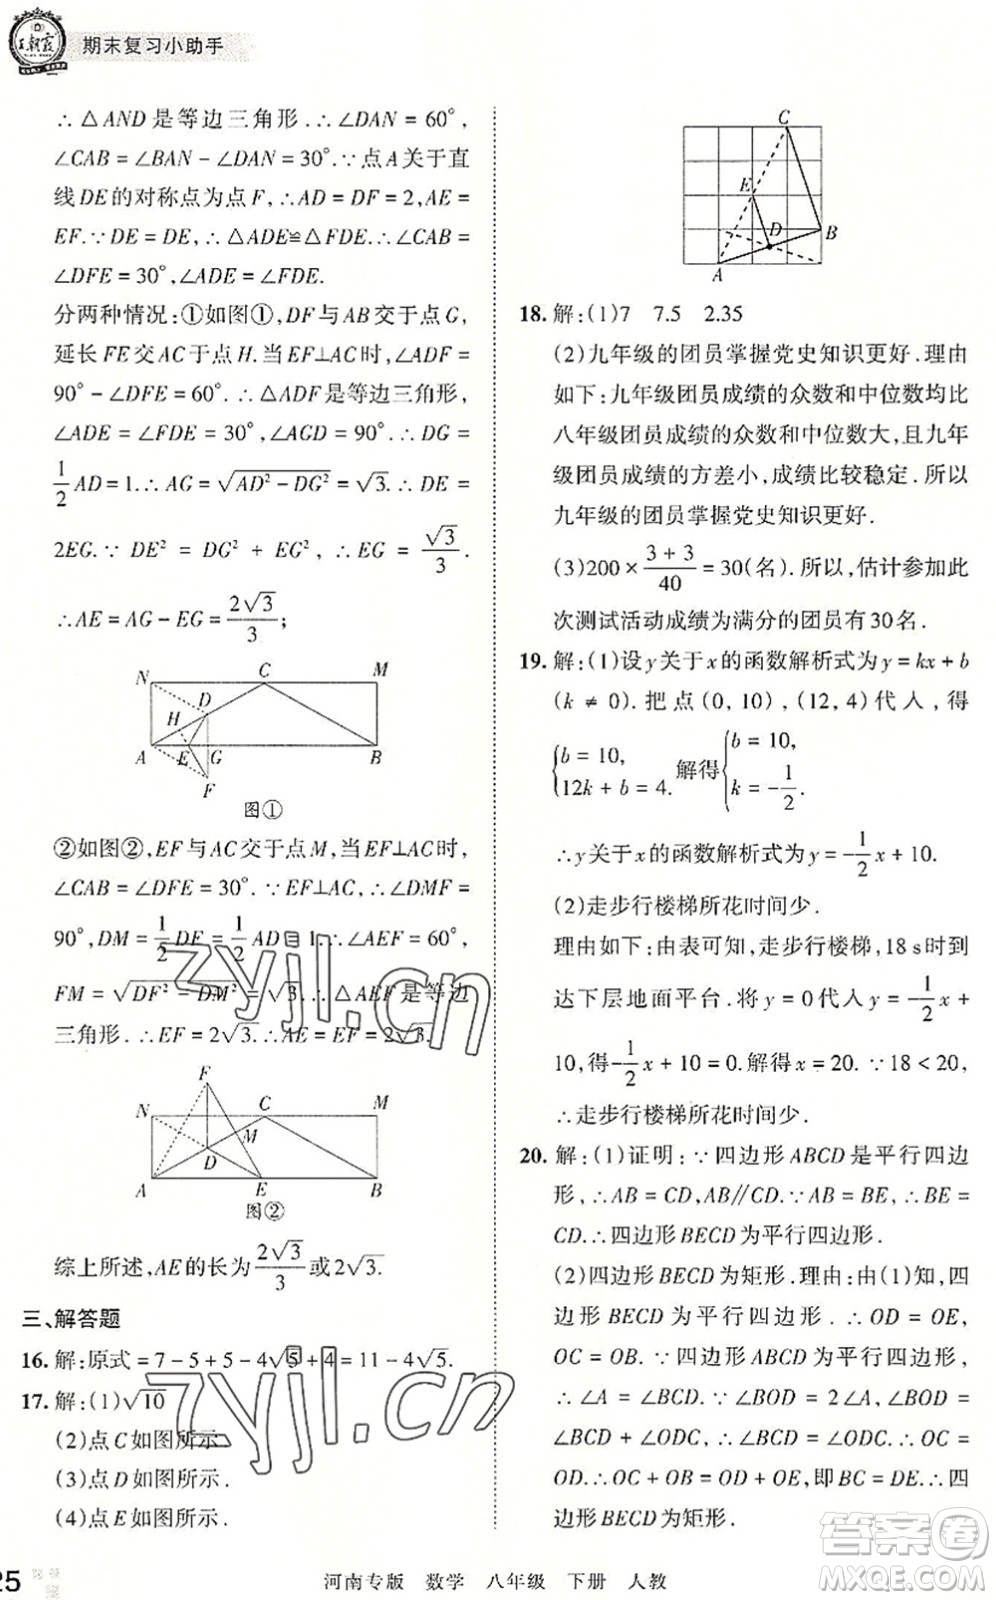 王朝霞
期末复习小助手
∴△AND是等边三角形.∴∠DAN=60°,
∠CAB=∠BAN-∠DAN=30°.∵点A关于直
线DE的对称点为点F,∴AD=DF=2,AE=
EF.∵DE=DE,∴△ADE≌△FDE.∴∠CAB=
∠DFE=30°,∠ADE=∠FDE.
分两种情况:①如图①,DF与AB交于点G,
延长FE交AC于点H.当EF⊥AC时,∠ADF=
90°-∠DFE=60°.∴△ADF是等边三角形,
∠ADE=∠FDE=30°,∠AGD=90°.∴DG=
1/2 AD=1.∴AG=√(AD²-DG²)=√3.∴DE=
2EG.∵DE²=DG²+EG²,∴EG=√3/3.
∴AE=AG-EG=2√3/3;
N C M
D
H
A E G B
F
图①
②如图②,EF与AC交于点M,当EF⊥AC时,
∠CAB=∠DFE=30°.∵EF⊥AC,∴∠DMF=
90°,DM=1/2 DE=1/2 AD=1.∴∠AEF=60°,
FM=√(DF²-DM²)=√3.∴△AEF是等边
三角形.∴EF=2√3.∴AE=EF=2√3.
F
N C M
M
D
A E B
图②
综上所述,AE的长为2√3/3或2√3.
三、解答题
16.解:原式=7-5+5-4√5+4=11-4√5.
17.解:(1)√10
(2)点C如图所示.
(3)点D如图所示.
(4)点E如图所示.
C
E
D B
A
18.解:(1)7 7.5 2.35
(2)九年级的团员掌握党史知识更好.理由
如下:九年级团员成绩的众数和中位数均比
八年级团员成绩的众数和中位数大,且九年
级团员成绩的方差小,成绩比较稳定.所以
九年级的团员掌握党史知识更好.
(3)200×(3+3)/40=30(名).所以,估计参加此
次测试活动成绩为满分的团员有30名.
19.解:(1)设y关于x的函数解析式为y=kx+b
(k≠0).把点(0,10),(12,4)代入,得
{b=10, 12k+b=4. 解得{b=10, k=-1/2.
∴y关于x的函数解析式为y=-1/2 x+10.
(2)走步行楼梯所花时间少.
理由如下:由表可知,走步行楼梯,18 s时到
达下层地面平台.将y=0代入y=-1/2 x+
10,得-1/2 x+10=0.解得x=20.∵18<20,
∴走步行楼梯所花时间少.
20.解:(1)证明:∵四边形ABCD是平行四边
形,∴AB=CD,AB∥CD.∵AB=BE,∴BE=
CD.∴四边形BECD为平行四边形.
(2)四边形BECD为矩形.理由:由(1)知,四
边形BECD为平行四边形.∴OD=OE,
OC=OB.∵四边形ABCD为平行四边形,
∴∠A=∠BCD.∵∠BOD=2∠A,∠BOD=
∠BCD+∠ODC,∴∠BCD=∠ODC.∴OC=
OD.∴OC+OB=OD+OE,即BC=DE.∴四
边形BECD为矩形.
zyjl.cn
zyjl.cn
答案圈
MXQE.COM
25
河南专版 数学 八年级 下册 人教